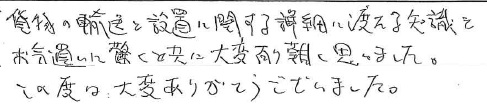 貨物の輸送と設置に関する詳細に渡る知識と
お気遣いに驚くと共に大変有り難く思いました。
この度は、大変ありがとうございました。